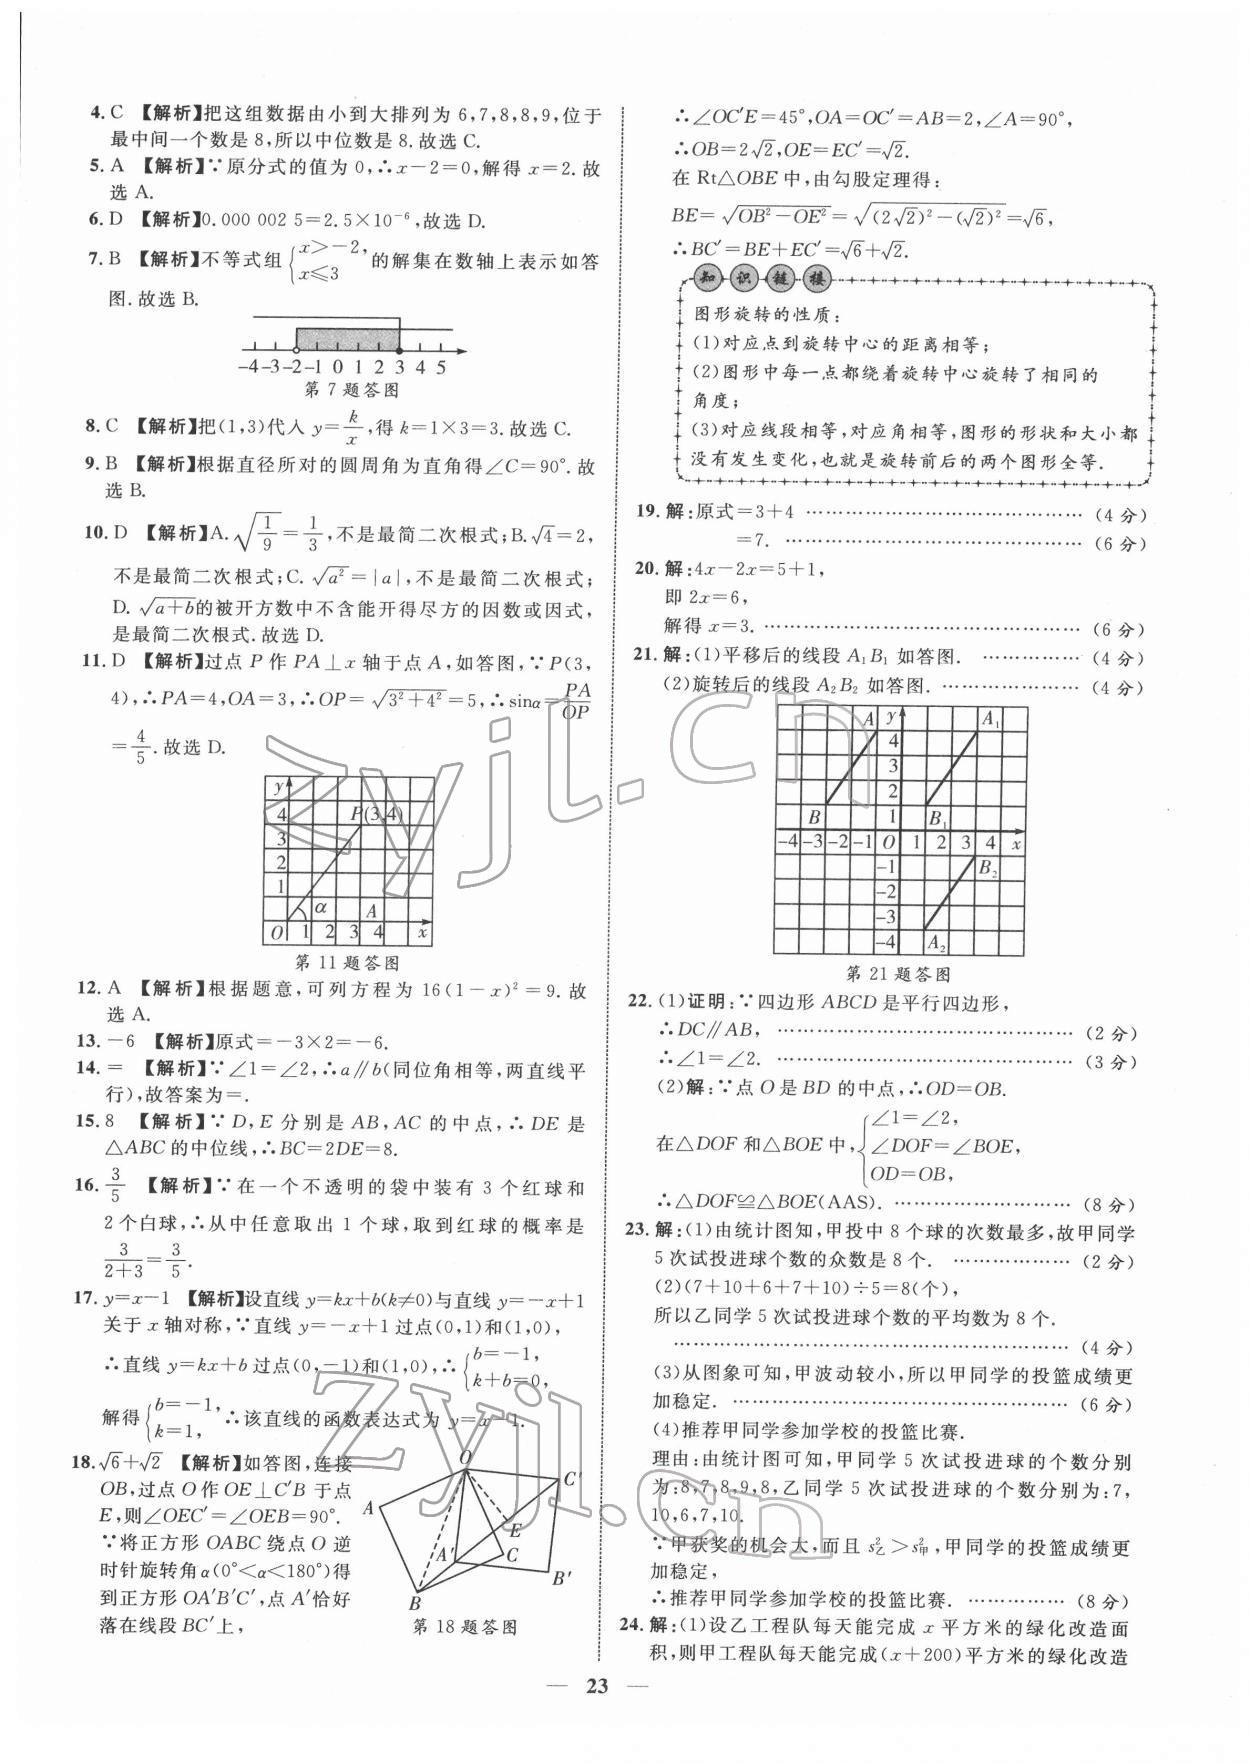 4. C 【解析】把这组数据由小到大排列为 6,7,8,8,9,位于
最中间一个数是 8,所以中位数是 8.故选 C.
5. A 【解析】∵原分式的值为 0,∴x−2=0,解得 x=2.故
选 A.
6. D 【解析】0.000 002 5=2.5×10⁻⁶,故选 D.
7. B 【解析】不等式组{x>−2, x≤3 的解集在数轴上表示如答
图.故选 B.
−4−3−2−1 0 1 2 3 4 5
第 7 题答图
8. C 【解析】把(1,3)代入 y=k/x,得 k=1×3=3.故选 C.
9. B 【解析】根据直径所对的圆周角为直角得∠C=90°.故
选 B.
10. D 【解析】A.√(1/9)=1/3,不是最简二次根式;B.√4=2,
不是最简二次根式;C.√a²=|a|,不是最简二次根式;
D.√(a+b)的被开方数中不含能开得尽方的因数或因式,
是最简二次根式.故选 D.
11. D 【解析】过点 P 作 PA⊥x 轴于点 A,如答图,∵P(3,
4),∴PA=4,OA=3,∴OP=√(3²+4²)=5,∴sinα=PA/OP
=4/5.故选 D.
y 4 3 2 1 P(3,4) α A O 1 2 3 4 x
第 11 题答图
12. A 【解析】根据题意,可列方程为 16(1−x)²=9.故
选 A.
13. −6 【解析】原式=−3×2=−6.
14. = 【解析】∵∠1=∠2,∴a∥b(同位角相等,两直线平
行),故答案为=.
15. 8 【解析】∵D,E 分别是 AB,AC 的中点,∴DE 是
△ABC 的中位线,∴BC=2DE=8.
16. 3/5 【解析】∵在一个不透明的袋中装有 3 个红球和
2 个白球,∴从中任意取出 1 个球,取到红球的概率是
3/(2+3)=3/5.
17. y=x−1 【解析】设直线 y=kx+b(k≠0)与直线 y=−x+1
关于 x 轴对称,∵直线 y=−x+1 过点(0,1)和(1,0),
∴直线 y=kx+b 过点(0,−1)和(1,0),∴{b=−1, k+b=0,
解得{b=−1, k=1, ∴该直线的函数表达式为 y=x−1.
18. √6+√2 【解析】如答图,连接
OB,过点 O 作 OE⊥C′B 于点
E,则∠OEC′=∠OEB=90°.
∵将正方形 OABC 绕点 O 逆
时针旋转角 α(0°<α<180°)得
到正方形 OA′B′C′,点 A′恰好
落在线段 BC′上,
O C′ A E A′ C B′ B
第 18 题答图
∴∠OC′E=45°,OA=OC′=AB=2,∠A=90°,
∴OB=2√2,OE=EC′=√2.
在 Rt△OBE 中,由勾股定理得:
BE=√(OB²−OE²)=√((2√2)²−(√2)²)=√6,
∴BC′=BE+EC′=√6+√2.
知识链接
图形旋转的性质:
(1)对应点到旋转中心的距离相等;
(2)图形中每一点都绕着旋转中心旋转了相同的
角度;
(3)对应线段相等,对应角相等,图形的形状和大小都
没有发生变化,也就是旋转前后的两个图形全等.
19. 解:原式=3+4 …………………………………… (4 分)
=7. …………………………………… (6 分)
20. 解:4x−2x=5+1,
即 2x=6,
解得 x=3. …………………………………… (6 分)
21. 解:(1)平移后的线段 A₁B₁ 如答图. …………… (4 分)
(2)旋转后的线段 A₂B₂ 如答图. ………………… (4 分)
A y A₁ 4 3 2 1 B B₁
−4 −3 −2 −1 O 1 2 3 4 x
−1 −2 −3 −4 B₂ A₂
第 21 题答图
22. (1)证明:∵四边形 ABCD 是平行四边形,
∴DC∥AB, …………………………………… (2 分)
∴∠1=∠2. …………………………………… (3 分)
(2)解:∵点 O 是 BD 的中点,∴OD=OB.
在△DOF 和△BOE 中,{∠1=∠2, ∠DOF=∠BOE, OD=OB,
∴△DOF≌△BOE(AAS). …………………… (8 分)
23. 解:(1)由统计图知,甲投中 8 个球的次数最多,故甲同学
5 次试投进球个数的众数是 8 个. ……………… (2 分)
(2)(7+10+6+7+10)÷5=8(个),
所以乙同学 5 次试投进球个数的平均数为 8 个.
…………………………………… (4 分)
(3)从图象可知,甲波动较小,所以甲同学的投篮成绩更
加稳定. …………………………………… (6 分)
(4)推荐甲同学参加学校的投篮比赛.
理由:由统计图可知,甲同学 5 次试投进球的个数分别
为:8,7,8,9,8,乙同学 5 次试投进球的个数分别为:7,
10,6,7,10.
∵甲获奖的机会大,而且 s²乙>s²甲,甲同学的投篮成绩更
加稳定,
∴推荐甲同学参加学校的投篮比赛. …………… (8 分)
24. 解:(1)设乙工程队每天能完成 x 平方米的绿化改造面
积,则甲工程队每天能完成(x+200)平方米的绿化改造
— 23 —
zyjl.cn
zyjl.cn